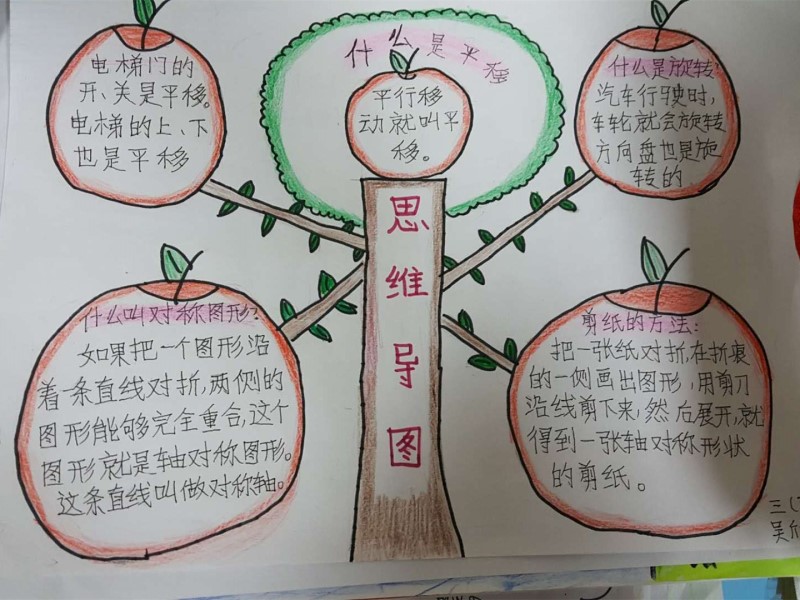 什么是平移
平行移
动就叫平
移。
电梯门的
开、关是平移。
电梯的上、下
也是平移
什么是旋转?
汽车行驶时,
车轮就会旋转
方向盘也是旋
转的
思
维
导
图
什么叫对称图形?
如果把一个图形沿
着一条直线对折,两侧的
图形能够完全重合,这个
图形就是轴对称图形。
这条直线叫做对称轴。
剪纸的方法:
把一张纸对折,在折痕
的一侧画出图形,用剪刀
沿线剪下来,然后展开,就
得到一张轴对称形状
的剪纸。
三(
吴